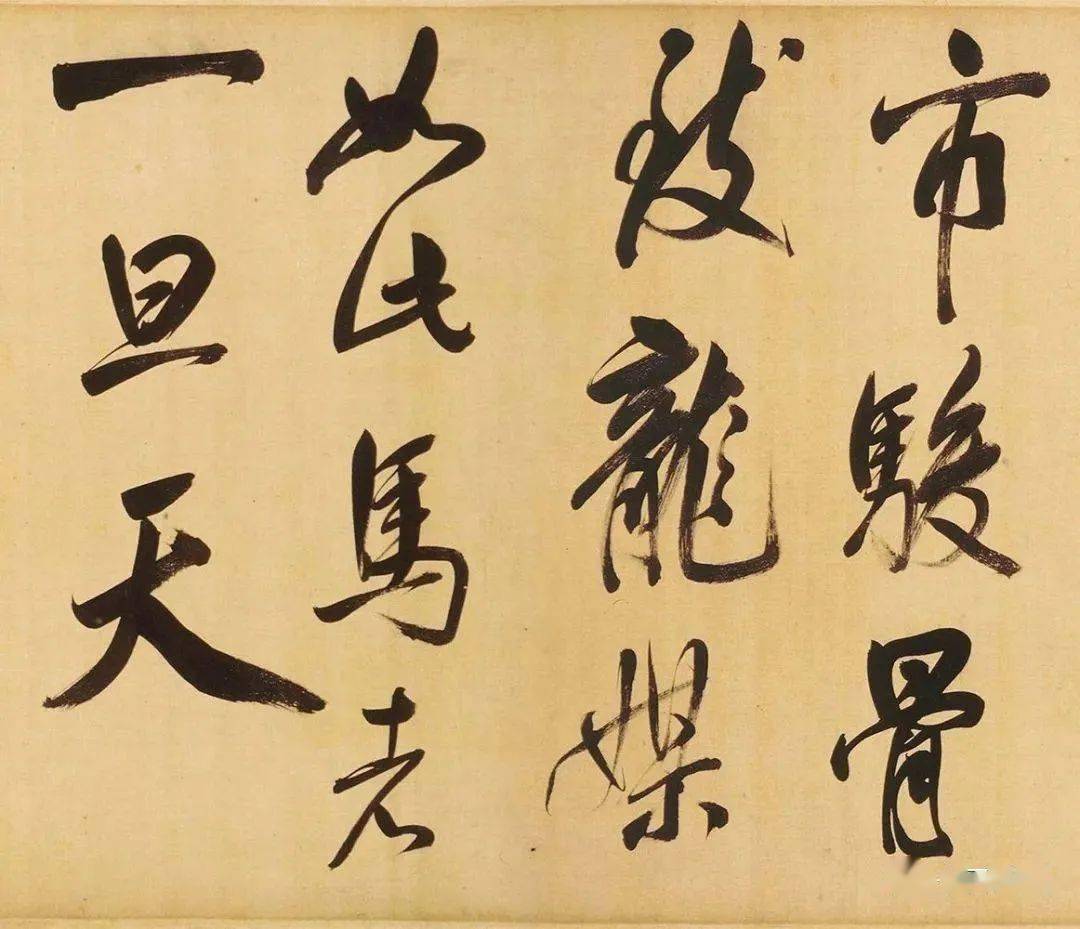 市駿骨
致龍媒
如此馬者
一旦天